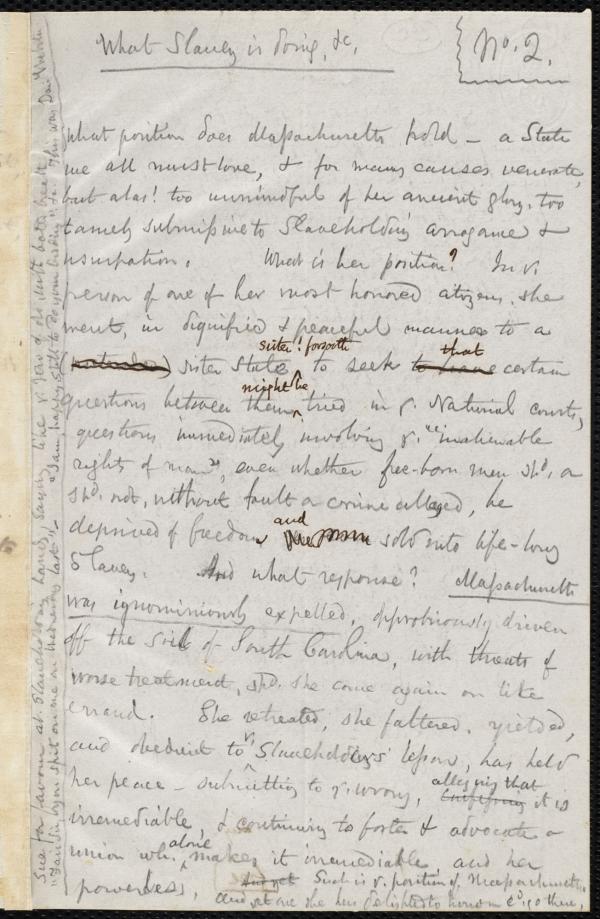 What Slavery is doing, &c.
No. 2.
What position does Massachusetts hold — a State
we all must love, & for many causes venerate,
but alas! too unmindful of her ancient glory, too
tamely submissive to Slaveholding arrogance &
usurpation. What is her position? In ye.
person of one of her most honored citizens, she
went, in dignified & peaceful manner to a
sister! forsooth that
sister State to seek certain
might be
questions between them tried in ye. National courts,
questions immediately involving ye. "inalienable
rights of man", even whether free-born men shd. or
shd. not, without fault or crime alleged, be
deprived of freedom
and
sold into life-long
Slavery. And what response? Massachusetts
was ignominiously expelled, opprobriously driven
off the soil of South Carolina, with threats of
worse treatment, shd. she come again on like
errand. She retreated, she faltered, yielded,
and obedient to ye Slaveholders' lesson, has held
her peace — submitting to ye. wrong,
alleging that
it is
irremediable, & continuing to foster & advocate a
union wh.
alone
makes it irremediable and her
powerless. And yet Such is ye. position of Massachusetts,
and at one she has
Sue for favour at Slaveholding hands, saying like ye Jew of old, with bated breath
"Fair Sir, you spit on me on Wednesday last" — "I am happy still to do your bidding"